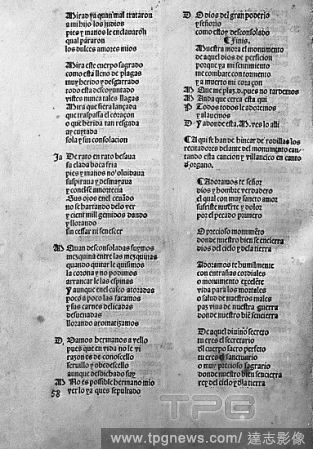 Mirad ya quan mal trataron
a mi hijo los judios
pies y manos le enclavaron
qual pararon
los dulces amores mios
Mira este cuerpo sagrado
como esta lleno de plagas
muy herido y desgarrado
todo esta descoyuntado
vistes nunca tales llagas
Mira que fiera lançada
que traspassa el coraçon
o que herida tan rasgada
ay cuytada
sola y sin consolacion
De rato en rato besava
su clara boca fria
pies y manos no olvidava
sospirava y desmayava
y con ese amortecia
Sus ojos en el cerrado
no se hartando de lo ver
y cient mil gemidos dando
y llorando
sin cessar ni fenescer
M. Quan desconsoladas fuymos
mezquina entre las mezquinas
quando quitar le quisimos
la corona y no podimos
arrancar le las espinas
Y aunque en el casco atoradas
poco a poco las sacamos
y sus carnes delicadas
desuenadas
llorando
D. Vamos hermanos a vello
pues que en vida no le vi
razon es de conoscello
servillo y obedescello
aunque desdichado fuy
M. No es possible hermano mio
ver lo ya ques sepultado
58
D. O dios del gran poderio
y señorio
como estoy desconsolado
Finis.
Muestra nora el monumento
de aquel dios de perficion
porque ya mi sentimiento
me combate con tormento
y a muerto mi coraçon
M. Que me plaz. D. pues no tardemos
M. Anda que cerca esta aqui
P. Todos todos le adoremos
y alavemos
D. Y adonde esta. M. ves lo alli
Aqui se han de hincar de rodillas los
recitadores delante del monumento can
tando esta cancion y villancico en canto
de organo.
Adoramos te señor
dios y hombre verdadero
el qual con muy santo amor
sufriste muerte y dolor
por el pecado primero
O precioso monumento
donde nuestro bien se encierra
dios del cielo y dela tierra
Adoramos te humilmente
con entrañas cordiales
o monumento excelente
vida para los mortales
o salud de nuestros males
paz viva de nuestra guerra
donde nuestro bien se encierra
De aquel divino secreto
tu eres el secretario
el cuerpo sacro perfecto
tu eres el sanctuario
o muy precioso sagrario
donde nuestro bien se encierra
rey del cielo y dela tierra
TPG
www.tpgnews.com/ 達志影像